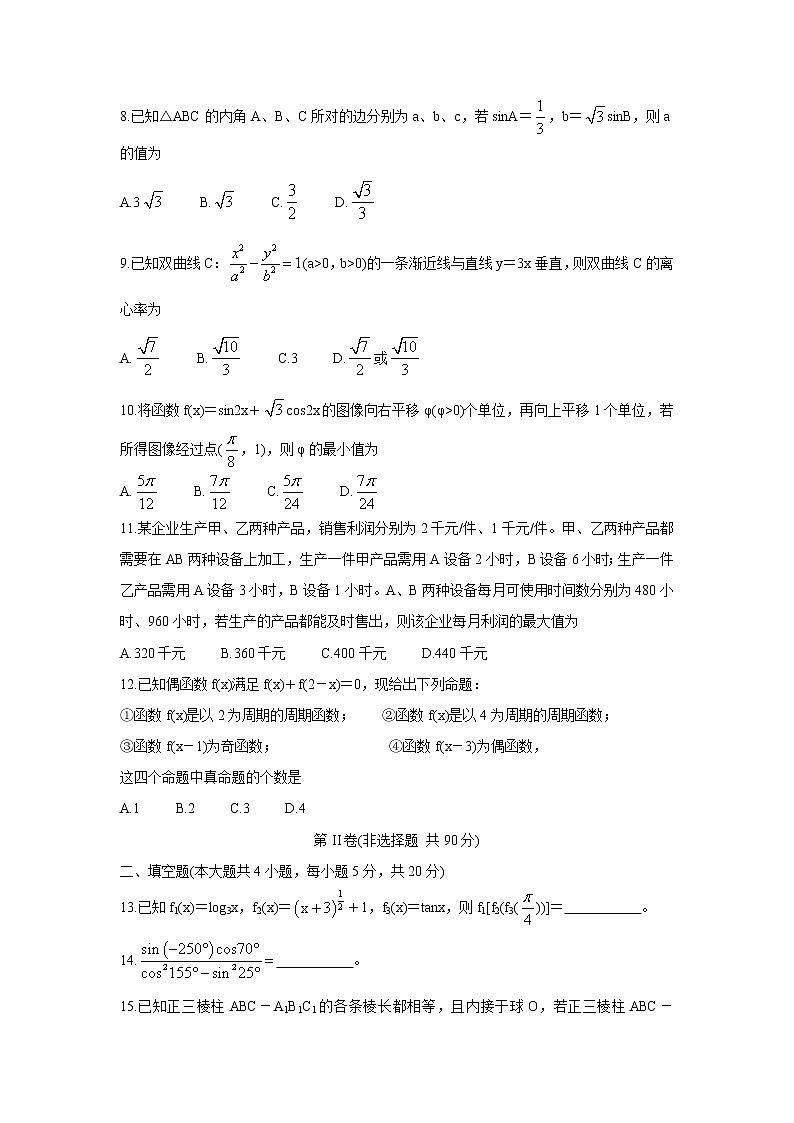 8.已知△ABC的内角A、B、C所对的边分别为a、b、c,若sinA=1/3,b=√3sinB,则a
的值为
A.3√3 B.√3 C.3/2 D.√3/3
9.已知双曲线C:x²/a²-y²/b²=1(a>0,b>0)的一条渐近线与直线y=3x垂直,则双曲线C的离
心率为
A.√7/2 B.√10/3 C.3 D.√7/2或√10/3
10.将函数f(x)=sin2x+√3cos2x的图像向右平移φ(φ>0)个单位,再向上平移1个单位,若
所得图像经过点(π/8,1),则φ的最小值为
A.5π/12 B.7π/12 C.5π/24 D.7π/24
11.某企业生产甲、乙两种产品,销售利润分别为2千元/件、1千元/件。甲、乙两种产品都
需要在AB两种设备上加工,生产一件甲产品需用A设备2小时,B设备6小时;生产一件
乙产品需用A设备3小时,B设备1小时。A、B两种设备每月可使用时间数分别为480小
时、960小时,若生产的产品都能及时售出,则该企业每月利润的最大值为
A.320千元 B.360千元 C.400千元 D.440千元
12.已知偶函数f(x)满足f(x)+f(2-x)=0,现给出下列命题:
①函数f(x)是以2为周期的周期函数; ②函数f(x)是以4为周期的周期函数;
③函数f(x-1)为奇函数; ④函数f(x-3)为偶函数,
这四个命题中真命题的个数是
A.1 B.2 C.3 D.4
第II卷(非选择题 共90分)
二、填空题(本大题共4小题,每小题5分,共20分)
13.已知f₁(x)=log₃x,f₂(x)=(x+3)^(1/2)+1,f₃(x)=tanx,则f₁[f₂(f₃(π/4))]=___________。
14.sin(-250°)cos70°/(cos²155°-sin²25°)=___________。
15.已知正三棱柱ABC-A₁B₁C₁的各条棱长都相等,且内接于球O,若正三棱柱ABC-